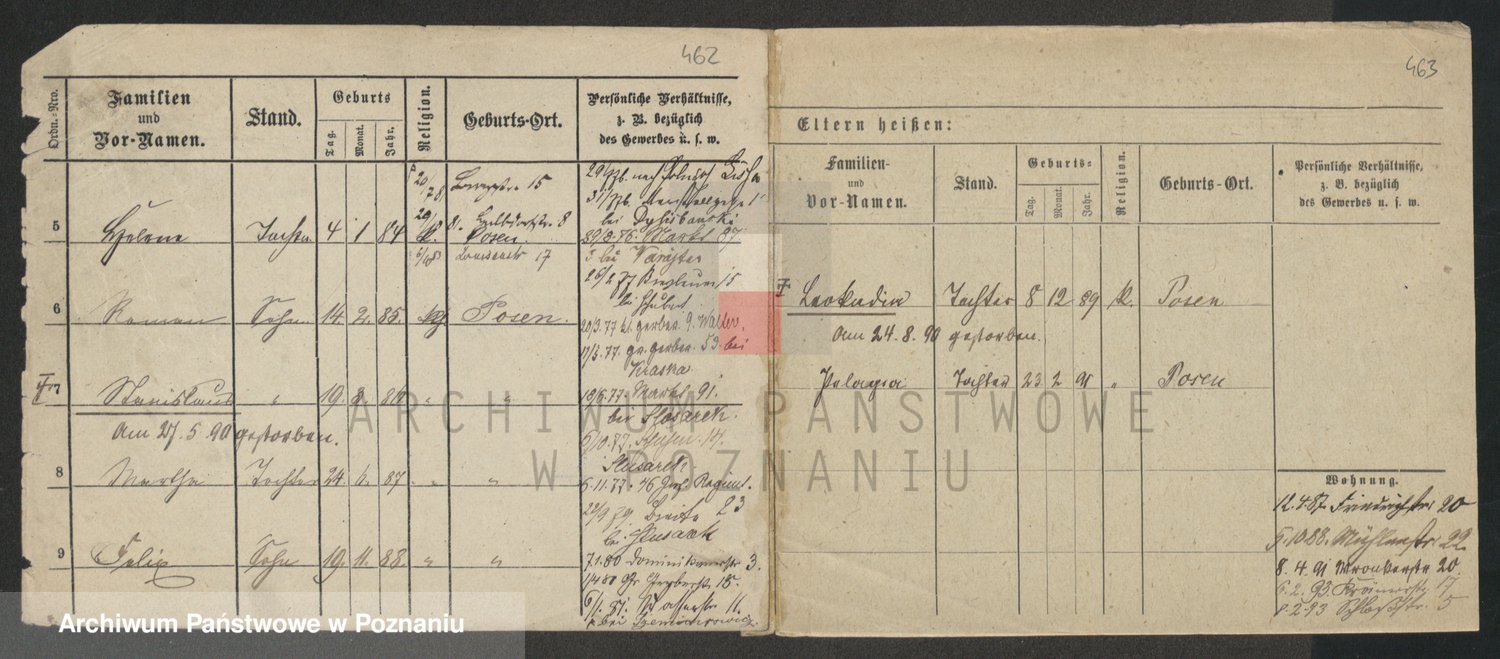 462
Ordn.-Nro.
Familien und Vor-Namen.
Stand.
Geburts
Tag. Monat. Jahr.
Religion.
Geburts-Ort.
Persönliche Verhältnisse, z. B. bezüglich des Gewerbes u. s. w.
5 Helene Tochter 4 1 84 k. Posen.
6 Roman Sohn 14. 2. 85. Posen.
7 Stanislaus " 19 86 " "
Am 27. 5. 90 gestorben.
8 Martha Tochter 24. 87 " "
9 Felix Sohn 19. 11. 88. " "
15
8
17
bei
29/8 76. Markt 87
26/2 77 15
bei Schubert
20/3. 77 kl. gerber. 9. Walter.
17/3. 77. gr. gerber. 53 bei
Kraska
18/6. 77. Markt 91.
bei Slosarek.
Slusarek
6. 11. 77. 46 Regimt.
Breite 23
bei Slusarek
7. 1. 80 Dominikanerstr 3.
15.
11.
bei
463
Eltern heißen:
Familien- und Vor-Namen.
Stand.
Geburts-
Tag. Monat. Jahr.
Religion.
Geburts-Ort.
Persönliche Verhältnisse, z. B. bezüglich des Gewerbes u. s. w.
Leokadia Tochter 8 12 89 k. Posen
Am 24. 8. 90 gestorben.
Pelagia Tochter 23 2 91 " Posen
Wohnung.
12. 4. 87. Friedrichstr 20
5. 10. 88. Mühlenstr 22.
8. 4. 91 Wronkerstr 20.
6. 2. 93. Krämerstr 17
8. 2. 93 Schloßstr. 5
ARCHIWUM PAŃSTWOWE
W POZNANIU
Archiwum Państwowe w Poznaniu